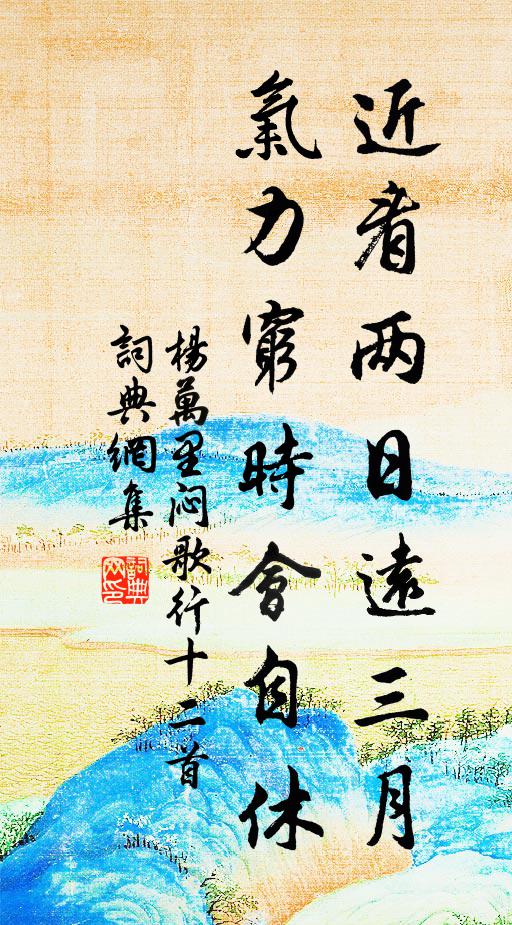 近者两日遠三月
氣力窮時會自休
楊萬里闷歌行十二首
詞典網集
詞典
网印